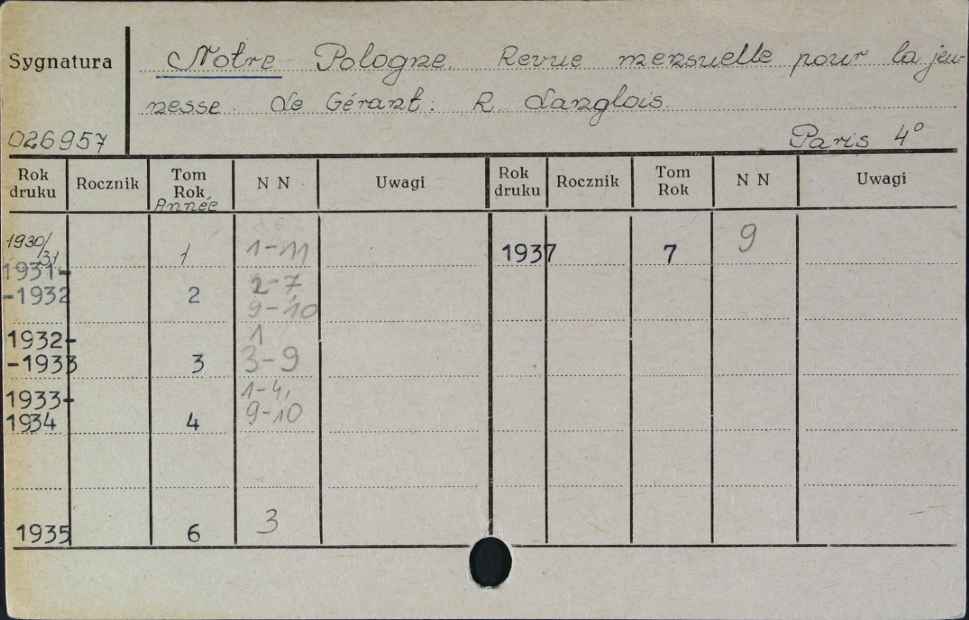 Sygnatura
Notre Pologne. Revue mensuelle pour la jeu-
nesse. Le Gérant: R. Langlois.
026957
Paris 4°
Rok druku Rocznik Tom Rok Année N N Uwagi Rok druku Rocznik Tom Rok N N Uwagi
1930/31 1 1-11 1937 7 9
1931-
-1932 2 2-7
9-10
1932-
-1933 3 1
3-9
1933-
1934 4 1-4,
9-10
1935 6 3